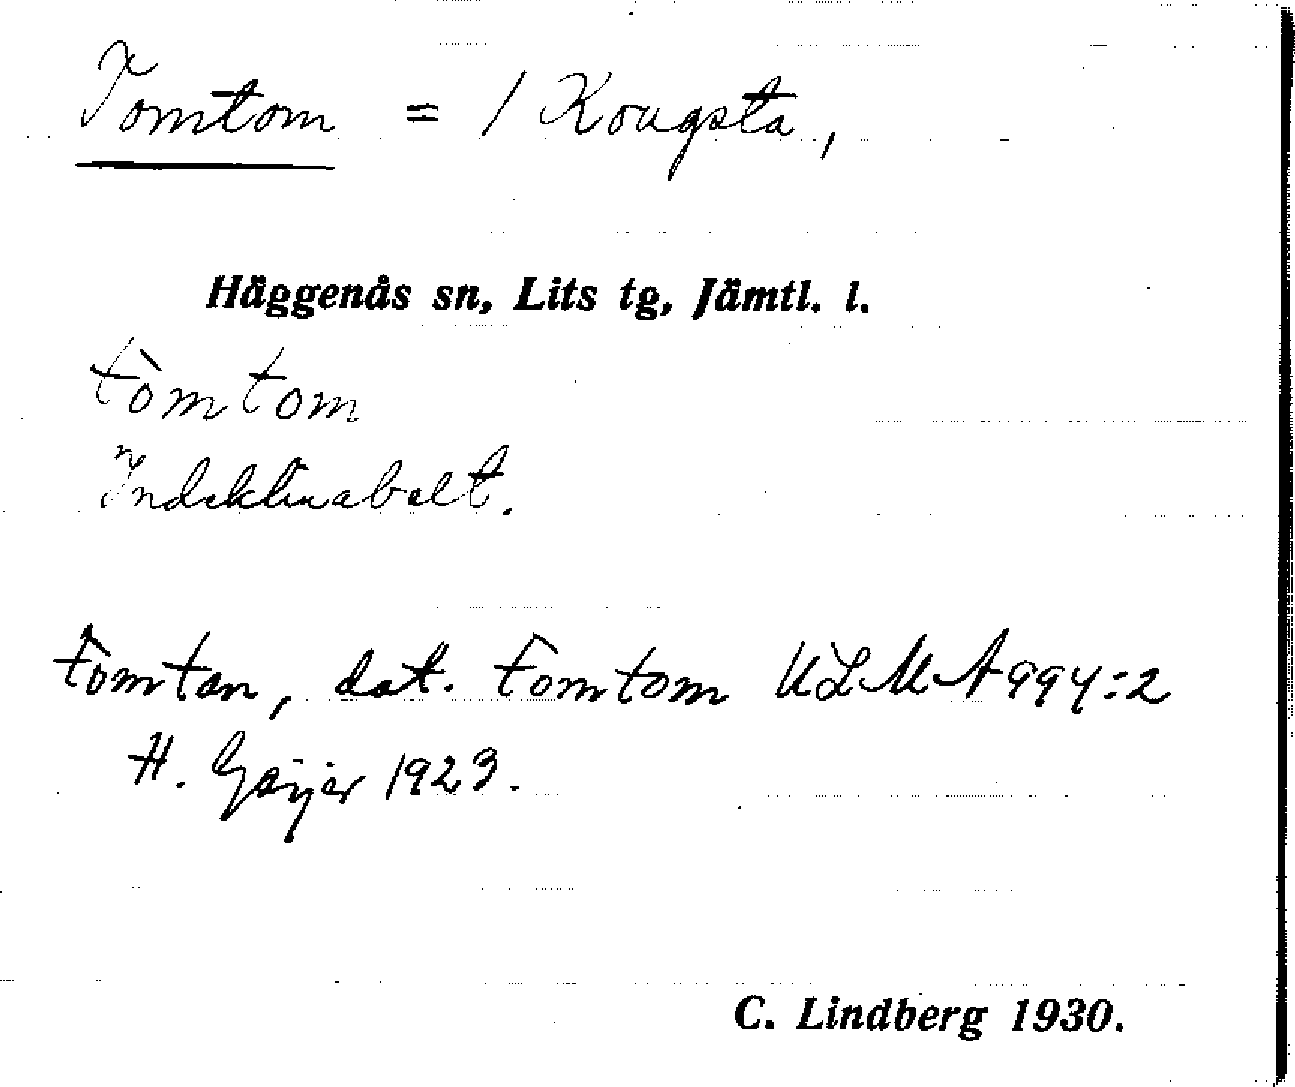 Tomtom = / Kougsta,
Häggenås sn, Lits tg, Jämtl. l.
tòmtom
Indeklinabelt.
tòmtan, dat. tòmtom ULMA 994:2
H. Geijer 1923.
C. Lindberg 1930.